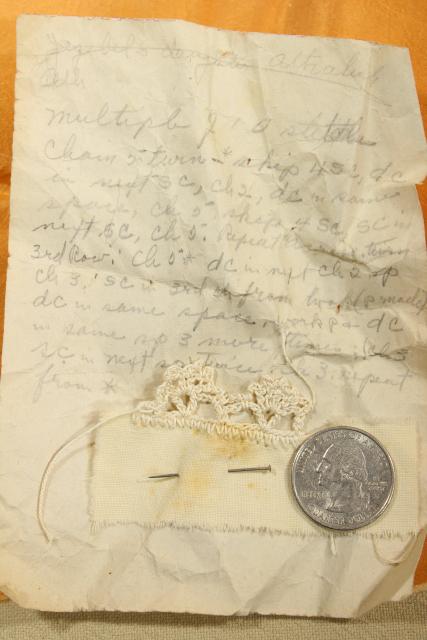 multiple of 10 stitches
Chain 5 turn - * skip 4 Sc, dc
in next Sc, ch 2, dc in same
space, ch 5, skip 4 Sc, Sc in
next Sc, ch 5. Repeat turn
3rd Row: Ch 5 * dc in next ch 2 sp
ch 3, sc in 3rd ch from hook (p made)
dc in same space, work p & dc
in same sp 3 more times. Ch 3
sc in next sp twice ch 3. repeat
from *
LIBERTY